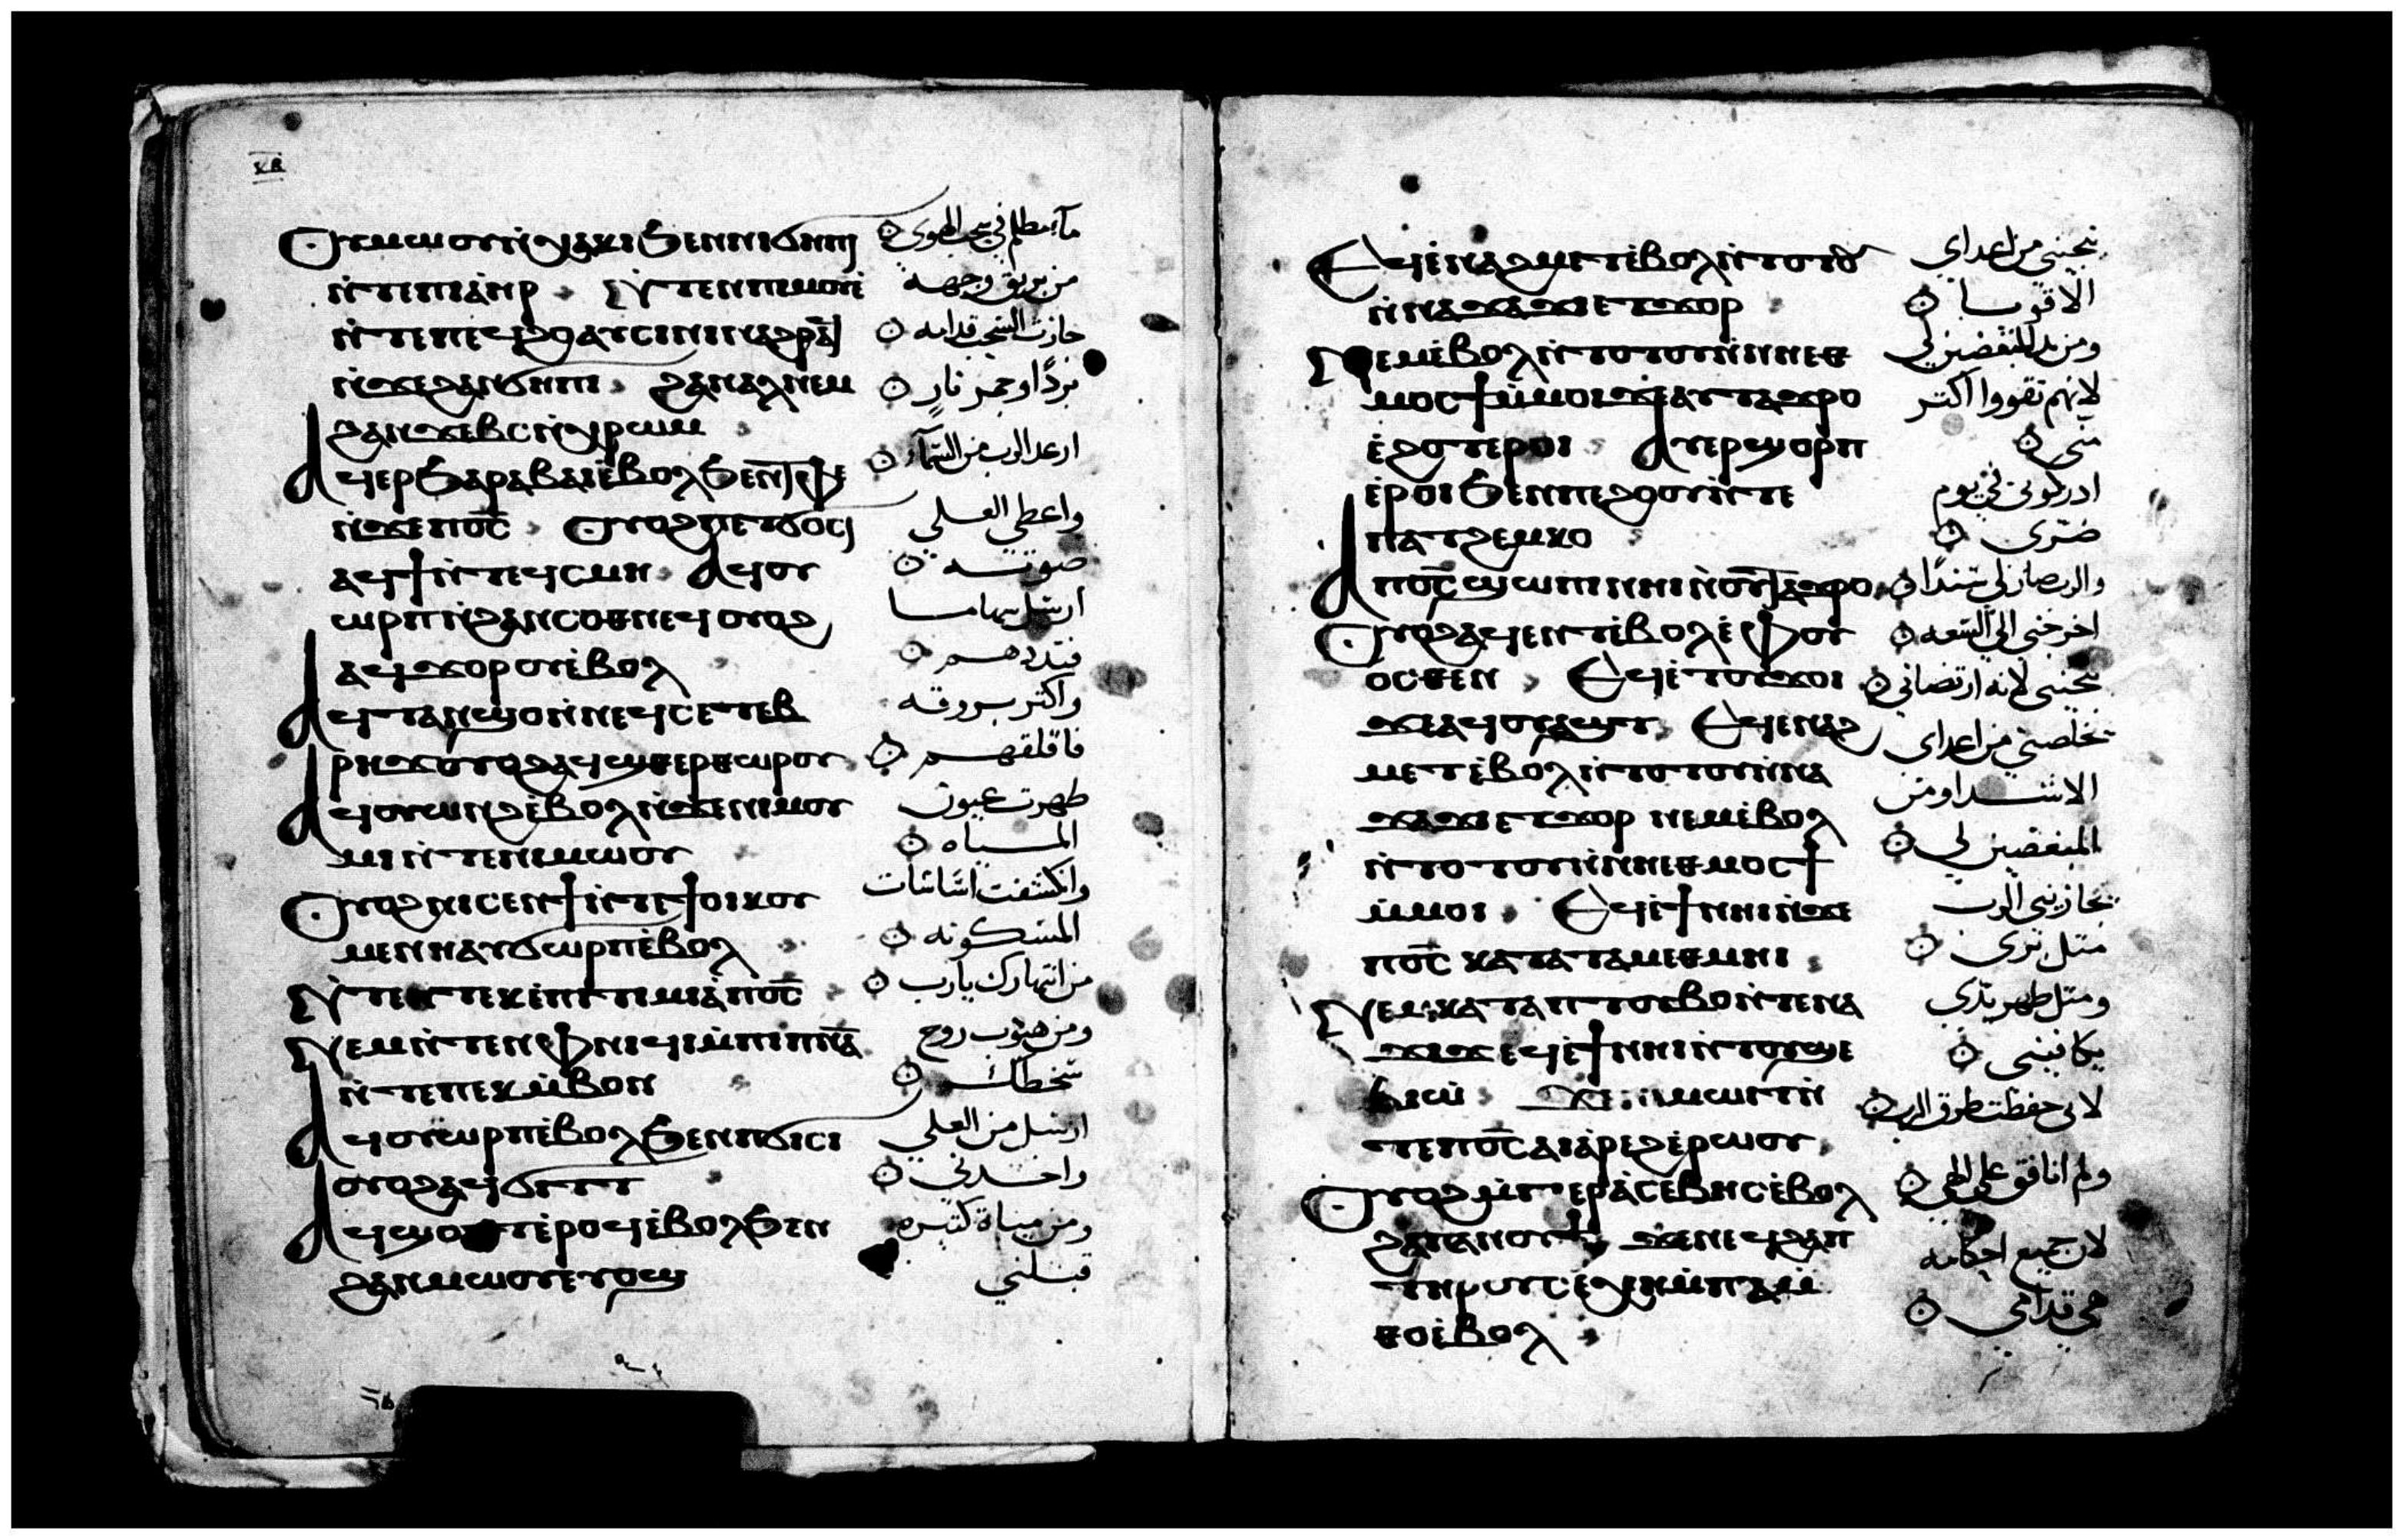 ⲕⲃ
ⲟⲩⲙⲱⲟⲩ ⲛ̀ⲭⲁⲕⲓ ϧⲉⲛ ⲛⲓϭⲏⲡⲓ
ⲛ̀ⲧⲉ ⲡⲓⲁ̀ⲏⲣ ⲛ̀ⲧⲉⲛ ⲡⲓⲙⲟⲩⲉ̀
ⲛ̀ⲧⲉ ⲡⲉϥϩⲟ ⲁⲩⲥⲓⲛⲓ ⲛⲁϩⲣⲁϥ
ⲛ̀ϫⲉ ϩⲁⲛϭⲏⲡⲓ ϩⲁⲛⲁⲗ ⲛⲉⲙ
ϩⲁⲛϫⲉⲃⲥ ⲛ̀ⲭⲣⲱⲙ
ⲁϥⲉⲣϧⲁⲣⲁⲃⲁⲓ ⲉ̀ⲃⲟⲗ ϧⲉⲛ ⲧⲫⲉ
ⲛ̀ϫⲉ ⲡⲟ̅ⲥ̅ ⲟⲩⲟϩ ⲡⲉⲧϭⲟⲥⲓ
ⲁϥϯ ⲛ̀ⲧⲉϥⲥⲙⲏ ⲁϥⲟⲩ
ⲱⲣⲡ ⲛ̀ϩⲁⲛⲥⲟⲑⲛⲉϥ ⲟⲩⲟϩ
ⲁϥϫⲟⲣⲟⲩ ⲉ̀ⲃⲟⲗ
ⲁϥⲧⲁⲛϣⲟ ⲛ̀ⲛⲉϥⲥⲉⲧⲉⲃ
ⲣⲏϫ ⲟⲩⲟϩ ⲁϥϣⲑⲉⲣⲑⲱⲣⲟⲩ
ⲁϥⲟⲩⲱⲛϩ ⲉ̀ⲃⲟⲗ ⲛ̀ϫⲉ ⲛⲓⲙⲟⲩ
ⲙⲓ ⲛ̀ⲧⲉ ⲛⲓⲙⲱⲟⲩ
ⲟⲩⲟϩ ⲛⲓⲥⲉⲛϯ ⲛ̀ⲧⲉ ϯⲟⲓⲕⲟⲩ
ⲙⲉⲛⲏ ⲁⲩϭⲱⲣⲡ ⲉ̀ⲃⲟⲗ
ⲛ̀ⲧⲉⲛ ⲧⲉⲕⲉ̀ⲡⲓⲧⲓⲙⲓⲁ̀ ⲡⲟ̅ⲥ̅
ⲛⲉⲙ ⲛ̀ⲧⲉⲛ ⲫⲛⲓϥⲓ ⲙ̀ⲡⲓⲡ̅ⲛ̅ⲁ̅
ⲛ̀ⲧⲉ ⲡⲉⲕⲙ̀ⲃⲟⲛ
ⲁϥⲟⲩⲱⲣⲡ ⲉ̀ⲃⲟⲗ ϧⲉⲛ ⲡϭⲓⲥⲓ
ⲟⲩⲟϩ ⲁϥϭⲓⲧⲧ
ⲁϥϣⲟⲡⲧ ⲉ̀ⲣⲟϥ ⲉ̀ⲃⲟⲗ ϧⲉⲛ
ϩⲁⲛⲙⲱⲟⲩ ⲉⲧⲟϣ
مآء مظلم في سحب الهوي
من بريق وجهه
جازت السحب قدامه
بردًا وجمر نارٍ
ارعد الرب من السمآء
واعطي العلي
صوته
ارسل سهامـا
فبددهم
واكتر بروقه
فاقلقهم
ظهرت عيون
المياه
وانكشفت اساسات
المسكونه
من انتهارك يارب
ومن هبوب روح
سخطك
ارسل من العلي
واخدني
ومن مياة كتيره
قبلني
ⲉϥⲉ̀ⲛⲁϩⲙⲉⲧ ⲉ̀ⲃⲟⲗ ⲛ̀ⲧⲟⲧⲟⲩ
ⲛ̀ⲛⲁϫⲁϫⲓ ⲉⲧϫⲟⲣ
ⲛⲉⲙ ⲉ̀ⲃⲟⲗ ⲛ̀ⲧⲟⲧⲟⲩ ⲛ̀ⲛⲏⲉⲑ
ⲙⲟⲥϯ ⲙ̀ⲙⲟⲓ ϫⲉ ⲁⲩⲧⲁϫⲣⲟ
ⲉ̀ϩⲟⲧⲉⲣⲟⲓ ⲁⲩⲉⲣϣⲟⲣⲡ
ⲉ̀ⲣⲟⲓ ϧⲉⲛ ⲡⲉϩⲟⲟⲩ ⲛ̀ⲧⲉ
ⲡⲁⲧϩⲉⲙⲕⲟ
ⲁ ⲡⲟ̅ⲥ̅ ϣⲱⲡⲓ ⲛⲏⲓ ⲛ̀ⲟⲩⲧⲁϫⲣⲟ
ⲟⲩⲟϩ ⲁϥⲉⲛⲧ ⲉ̀ⲃⲟⲗ ⲉ̀ⲫⲟⲩ
ⲟⲥⲑⲉⲛ ⲉϥⲉ̀ⲧⲟⲩϫⲟⲓ
ϫⲉ ⲁϥⲟⲩⲁϣⲧ ⲉϥⲉ̀ⲛⲁϩ
ⲙⲉⲧ ⲉ̀ⲃⲟⲗ ⲛ̀ⲧⲟⲧⲟⲩ ⲛ̀ⲛⲁ
ϫⲁϫⲓ ⲉⲧϫⲟⲣ ⲛⲉⲙ ⲉ̀ⲃⲟⲗ
ⲛ̀ⲧⲟⲧⲟⲩ ⲛ̀ⲛⲏⲉⲑⲙⲟⲥϯ
ⲙ̀ⲙⲟⲓ ⲉϥⲉ̀ϯ ⲛⲏⲓ ⲛ̀ϫⲉ
ⲡⲟ̅ⲥ̅ ⲕⲁⲧⲁ ⲧⲁⲙⲉⲑⲙⲏⲓ
ⲛⲉⲙ ⲕⲁⲧⲁ ⲡⲧⲟⲩⲃⲟ ⲛ̀ⲧⲉ ⲛⲁ
ϫⲓϫ ⲉϥⲉ̀ϯ ⲛⲏⲓ ⲛ̀ⲧⲟⲩϣⲉ
ⲃⲓⲱ̀ ϫⲉ ⲛⲓⲙⲱⲓⲧ ⲛ̀
ⲧⲉ ⲡⲟ̅ⲥ̅ ⲁⲓⲁ̀ⲣⲉϩ ⲉ̀ⲣⲱⲟⲩ
ⲟⲩⲟϩ ⲙ̀ⲡⲓⲉⲣⲁ̀ⲥⲉⲃⲏⲥ ⲉ̀ⲃⲟⲗ
ϩⲁ ⲡⲁⲛⲟⲩϯ ϫⲉ ⲛⲉϥϩⲁⲡ
ⲧⲏⲣⲟⲩ ⲥⲉⲭⲏ ⲙ̀ⲡⲁⲙ̀
ⲑⲟ ⲉ̀ⲃⲟⲗ
ينجيني من اعداي
الاقويـا
ومن يد المبغضين لي
لانهم تقووا اكتر
مني
ادركوني في يوم
ضري
والرب صار لي سندًا
اخرجني الي السعه
ينجيني لانه ارتضاني
يخلصني من اعداي
الاشـدا ومن
المبغضين لي
يجازيني الرب
متل بري
ومتل طهر يدي
يكافيني
لاني حفظت طرق الرب
ولم انافق علي الهي
لان جميع احكامه
هي قدامي